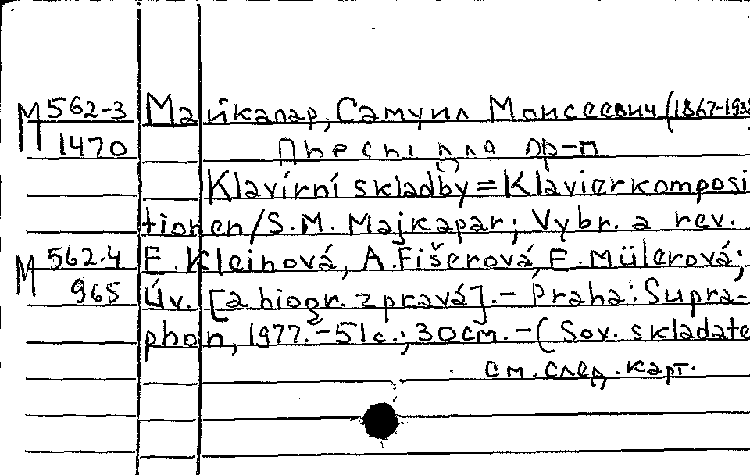 М 562-3 Майкапар, Самуил Моисеевич (1867-1938
1470 Пьесы для ф-п
Klavírní skladby = Klavierkomposi
tionen/S.M. Majkapar; Vybr. a rev.
М 562.4 E. Kleinová, A. Fišerová, E. Mülerová;
965 Úv. [a biogr. zpravá]. - Praha: Supra-
phon, 1977. - 51 с.; 30cm. - (Sov. skladate
см. след. карт.